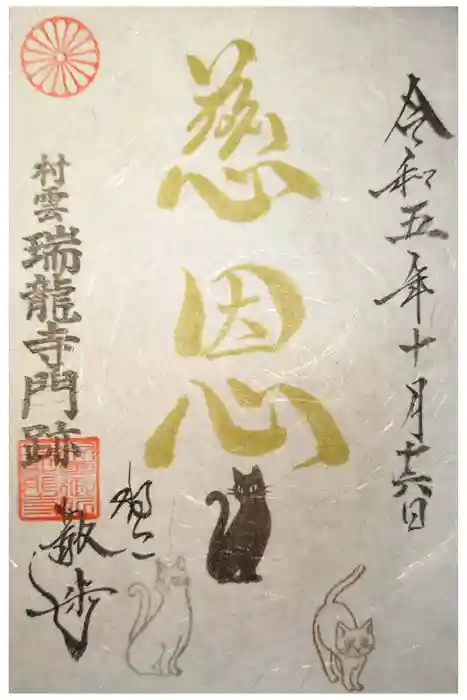 令和五年十月十六日
慈恩
村雲
瑞龍寺門跡
散歩